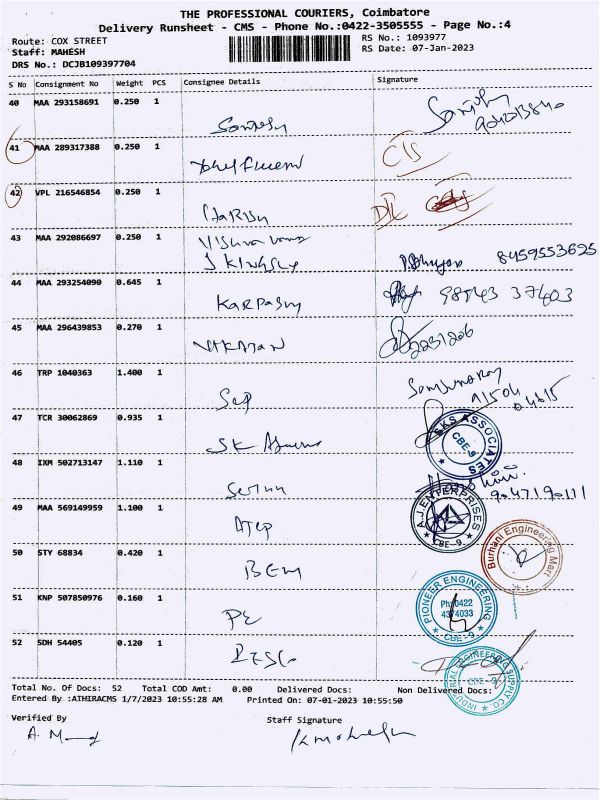 THE PROFESSIONAL COURIERS, Coimbatore
Delivery Runsheet - CMS - Phone No.:0422-3505555 - Page No.:4
Route: COX STREET RS No.: 1093977
Staff: MAHESH RS Date: 07-Jan-2023
DRS No.: DCJB109397704
S No Consignment No Weight PCS Consignee Details Signature
40 MAA 293158691 0.250 1
Santosh
41 MAA 289317388 0.250 1
42 VPL 216546854 0.250 1
Harish
43 MAA 292086697 0.250 1
J Kingsly 8459553625
44 MAA 293254090 0.645 1
Karpasny 98543 37403
45 MAA 296439853 0.270 1
46 TRP 1040363 1.400 1
47 TCR 30062869 0.935 1
SKS ASSOCIATES
CBE-9
48 IXM 502713147 1.110 1
9047190111
49 MAA 569149959 1.100 1
A.J ENTERPRISES
CBE - 9
AJEP
50 STY 68834 0.420 1
Burhani Engineering Mart
BEM
51 KNP 507850976 0.160 1
PIONEER ENGINEERING
Ph:0422
4374033
CBE-9
PE
52 SDH 54405 0.120 1
INDUSTRIAL ENGINEERING SUPPLY CO.
CBE - 9
IESCo
Total No. Of Docs: 52 Total COD Amt: 0.00 Delivered Docs: Non Delivered Docs:
Entered By :ATHIRACMS 1/7/2023 10:55:28 AM Printed On: 07-01-2023 10:55:50
Verified By Staff Signature